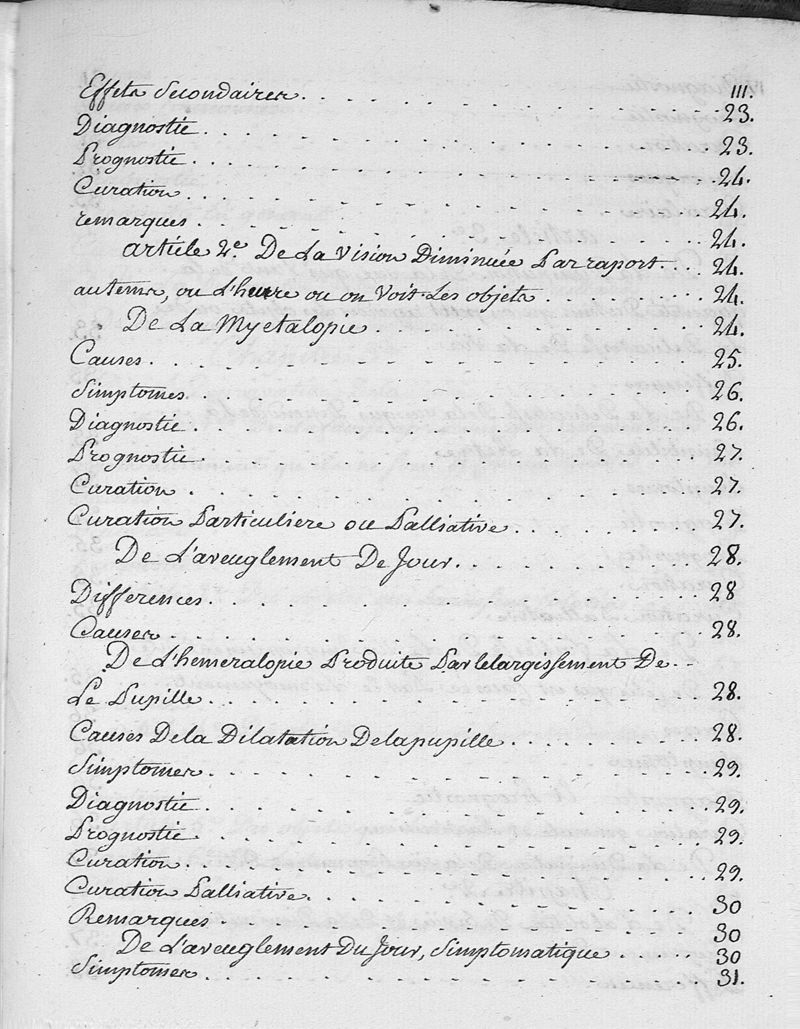 III.
Effets Secondaires. . . . . . . . 23.
Diagnostic. . . . . . . . 23.
Prognostic. . . . . . . . 24.
Curation . . . . . . . . 24.
remarques . . . . . . . . 24.
article 2.e De La Vision Diminuée Par raport . . . 24.
autems, ou L'heure ou on Voit Les objets . . . . . . 24.
De La Myctalopie . . . . . . . . 24.
Causes. . . . . . . . 25.
Simptomes . . . . . . . . 26.
Diagnostic . . . . . . . . 26.
Prognostic . . . . . . . . 27.
Curation . . . . . . . . 27.
Curation Particuliere ou Palliative . . . . . . . 27.
De L'aveuglement De Jour. . . . . . . . 28.
Differences. . . . . . . . 28
Causes . . . . . . . . 28.
De L'hemeralopie Produite Par Lelargissement De
Le Pupille . . . . . . . . 28.
Causes De la Dilatation De la pupille . . . . . . . 28.
Simptomes . . . . . . . . 29.
Diagnostic . . . . . . . . 29.
Prognostic . . . . . . . . 29.
Curation . . . . . . . . 29.
Curation Palliative. . . . . . . . 30
Remarques . . . . . . . . 30
De L'aveuglement Du Jour, Simptomatique . . . . . 30
Simptomes . . . . . . . . 31.